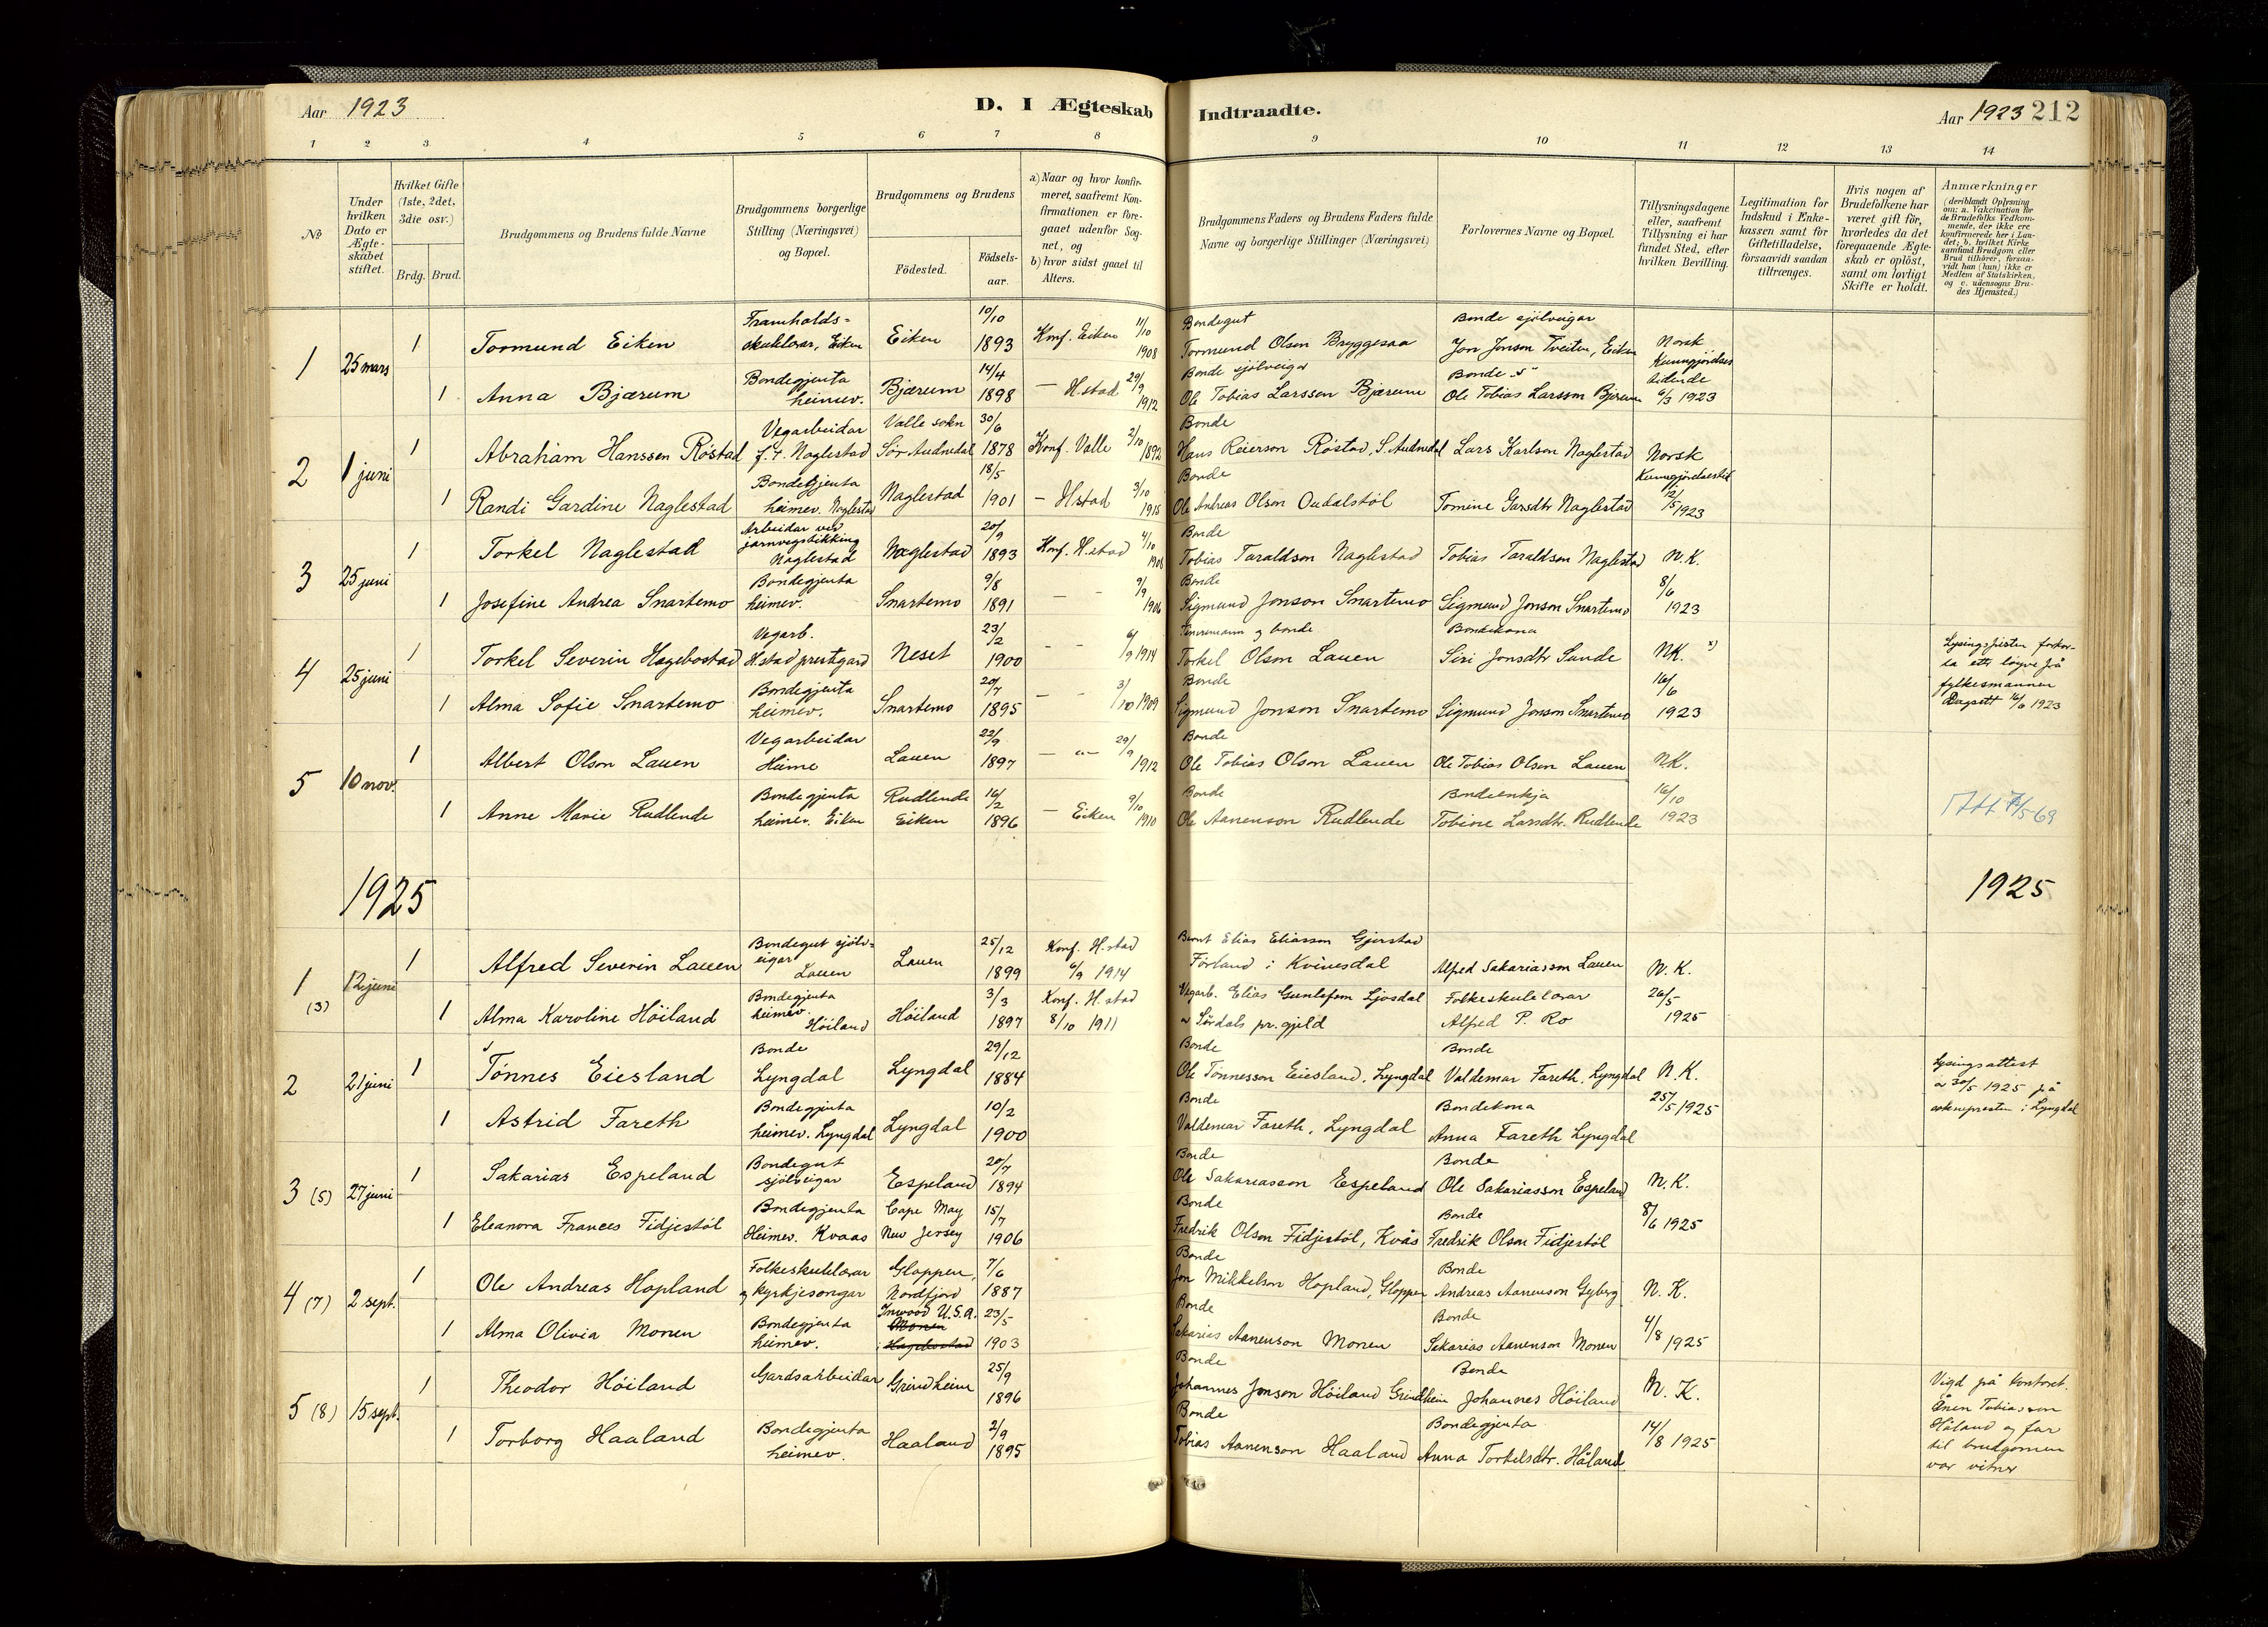 Aar 1923
D. I Ægteskab Indtraadte.
Aar 1923 212
1 2 3 4 5 6 7 8 9 10 11 12 13 14
No
Under hvilken Dato er Ægteskabet stiftet.
Hvilket Gifte (1ste, 2det, 3die osv.)
Brdg. Brud.
Brudgommens og Brudens fulde Navne
Brudgommens borgerlige Stilling (Næringsvei) og Bopæl.
Brudgommens og Brudens
Födested. Födsels-aar.
a) Naar og hvor konfir-
meret, saafremt Kon-
firmationen er fore-
gaaet udenfor Sog-
net, og
b) hvor sidst gaaet til
Alters.
Brudgommens Faders og Brudens Faders fulde
Navne og borgerlige Stillinger (Næringsvei)
Forlovernes Navne og Bopæl.
Tillysningsdagene
eller, saafremt
Tillysning ei har
fundet Sted, efter
hvilken Bevilling.
Legitimation for
Indskud i Enke-
kassen samt for
Giftetilladelse,
forsaavidt saadan
tiltrænges.
Hvis nogen af
Brudefolkene har
været gift för,
hvorledes da det
foregaaende Ægte-
skab er oplöst,
samt om lovligt
Skifte er holdt.
Anmærkninger
(deriblandt Oplysning
om: a. Vakcination for
de Brudefolks Vedkom-
mende, der ikke ere
konfirmerede her i Lan-
det; b. hvilket Kirke-
samfund Brudgom eller
Brud tilhörer, forsaa-
vidt han (hun) ikke er
Medlem af Statskirken,
og c. udensogns Bru-
des Hjemsted.)
1 25 mars 1 Tormund Eiken Framhalds-skulelærar, Eiken Eiken 10/10 1893 Konf. Eiken 11/10 1908 Bondegut Tormund Olson Bryggesaa Bonde sjölveigar Jon Jonson Tveiten, Eiken Norsk Kunngjördses
1 Anna Bjærum Bondegjenta heimev. Bjærum 14/4 1898 — H.stad 29/9 1912 Bonde sjölveigar Ole Tobias Larssen Bjærum Bonde Ole Tobias Larsson Bjærum tidende 6/3 1923
2 1 juni 1 Abraham Hanssen Röstad Vegarbeidar f.t. Naglestad Valle sokn Sör Audnedal 30/6 1878 Konf. Valle 2/10 1892 Bonde Hans Reierson Röstad, S. Audnedal Lars Karlson Naglestad Norsk
1 Randi Gardine Naglestad Bondegjenta heimev. Naglestad Naglestad 18/5 1901 — H.stad 3/10 1915 Bonde Ole Andreas Olson Oudalstöl Tomine Garsdtr Naglestad Kunngjördsestid 12/5 1923
3 25 juni 1 Torkel Naglestad Arbeidar ved jarnvegstikking Naglestad Naglestad 20/9 1893 Konf. H.stad 4/10 1908 Bonde Tobias Taraldson Naglestad Tobias Taraldson Naglestad N.K.
1 Josefine Andrea Snartemo Bondegjenta heimev. Snartemo 9/8 1891 — - 9/9 1906 Bonde Sigmund Jonson Snartemo Sigmund Jonson Snartemo 8/6 1923
4 25 juni 1 Torkel Severin Hægebostad Vegarb. H.stad prestgard Neset 23/2 1900 - - 6/9 1914 og bonde Torkel Olson Lauen Bondekona Siri Jonsdtr Sunde NK. x) Lysingsfristen forkor-
ta etter löyve frå
fylkesmannen
Dagsett 16/6 1923
1 Alma Sofie Snartemo Bondegjenta heimev. Snartemo 20/7 1895 — - 3/10 1909 Bonde Sigmund Jonson Snartemo Sigmund Jonson Snartemo 16/6 1923
5 10 nov. 1 Albert Olson Lauen Vegarbeidar Heime Lauen 23/9 1897 — „— 29/9 1912 Bonde Ole Tobias Olson Lauen Ole Tobias Olson Lauen N.K.
1 Anne Marie Rudlende Bondegjenta heimev. Eiken Rudlende Eiken 16/2 1896 — Eiken 9/10 1910 Bonde Ole Aanenson Rudlende Bondeenkja Tobine Larsdtr. Rudlende 16/10 1923
1925 1925
1 (3) 12 juni 1 Alfred Severin Lauen Bondegut sjölv-eigar Lauen Lauen 25/12 1899 Konf. H.stad 6/9 1914 Bernt Elias Eliasson Gjerstad Förland i Kvinesdal Alfred Sakariasson Lauen N.K.
1 Alma Karoline Höiland Bondegjenta heimev. Höiland Höiland 3/3 1897 Konf. H.stad 8/10 1911 Vegarb. Elias Gunlefsen Ljosdal Sirdals pr.gjeld Folkeskulelærar Alfred P. Ro 26/5 1925
2 21 juni 1 Tönnes Eiesland Bonde Lyngdal Lyngdal 29/12 1884 Bonde Ole Tönnesson Eiesland, Lyngdal Bonde Valdemar Fareth, Lyngdal N.K. Lysingsattest
30/5 1925 på
sokneprestem i Lyngdal
1 Astrid Fareth Bondegjenta heimev. Lyngdal Lyngdal 10/2 1900 Bonde Valdemar Fareth, Lyngdal Bondekona Anna Fareth Lyngdal 25/5 1925
3 (5) 27 juni 1 Sakarias Espeland Bondegut sjölveigar Espeland 20/7 1894 Bonde Ole Sakariasson Espeland Bonde Ole Sakariasson Espeland N.K.
1 Eleanora Frances Fidjestöl Bondegjenta Heimev. Kvaas Cape May New Jersey 15/7 1906 Bonde Fredrik Olson Fidjestöl, Kvås Bonde Fredrik Olson Fidjestöl 8/6 1925
4 (7) 2 sept. 1 Ole Andreas Hopland Folkeskulelærar og kyrkjesongar Gloppen, Nordfjord 7/6 1887 Bonde Jon Mikkelson Hopland, Gloppen Bonde Andreas Aanenson Gyberg N.K.
1 Alma Olivia Monen Bondegjenta heimev. Inwood U.S.A. Monen i Hægebostad 23/5 1903 Bonde Sakarias Aanenson Monen Bonde Sakarias Aanenson Monen 4/8 1925
5 (8) 15 sept. 1 Theodor Höiland Gardsarbeidar Grindheim 25/9 1896 Bonde Johannes Jonson Höiland Grindheim Bonde Johannes Höiland N.K. Vigd på kontoret.
Ånen Tobiasson
Håland og far
til brudgomen
var vitner
1 Torborg Haaland Bondegjenta heimev. Haaland 2/9 1895 Bonde Tobias Aanenson Haaland Bondegjenta Anna Torkelsdtr. Håland 14/8 1925